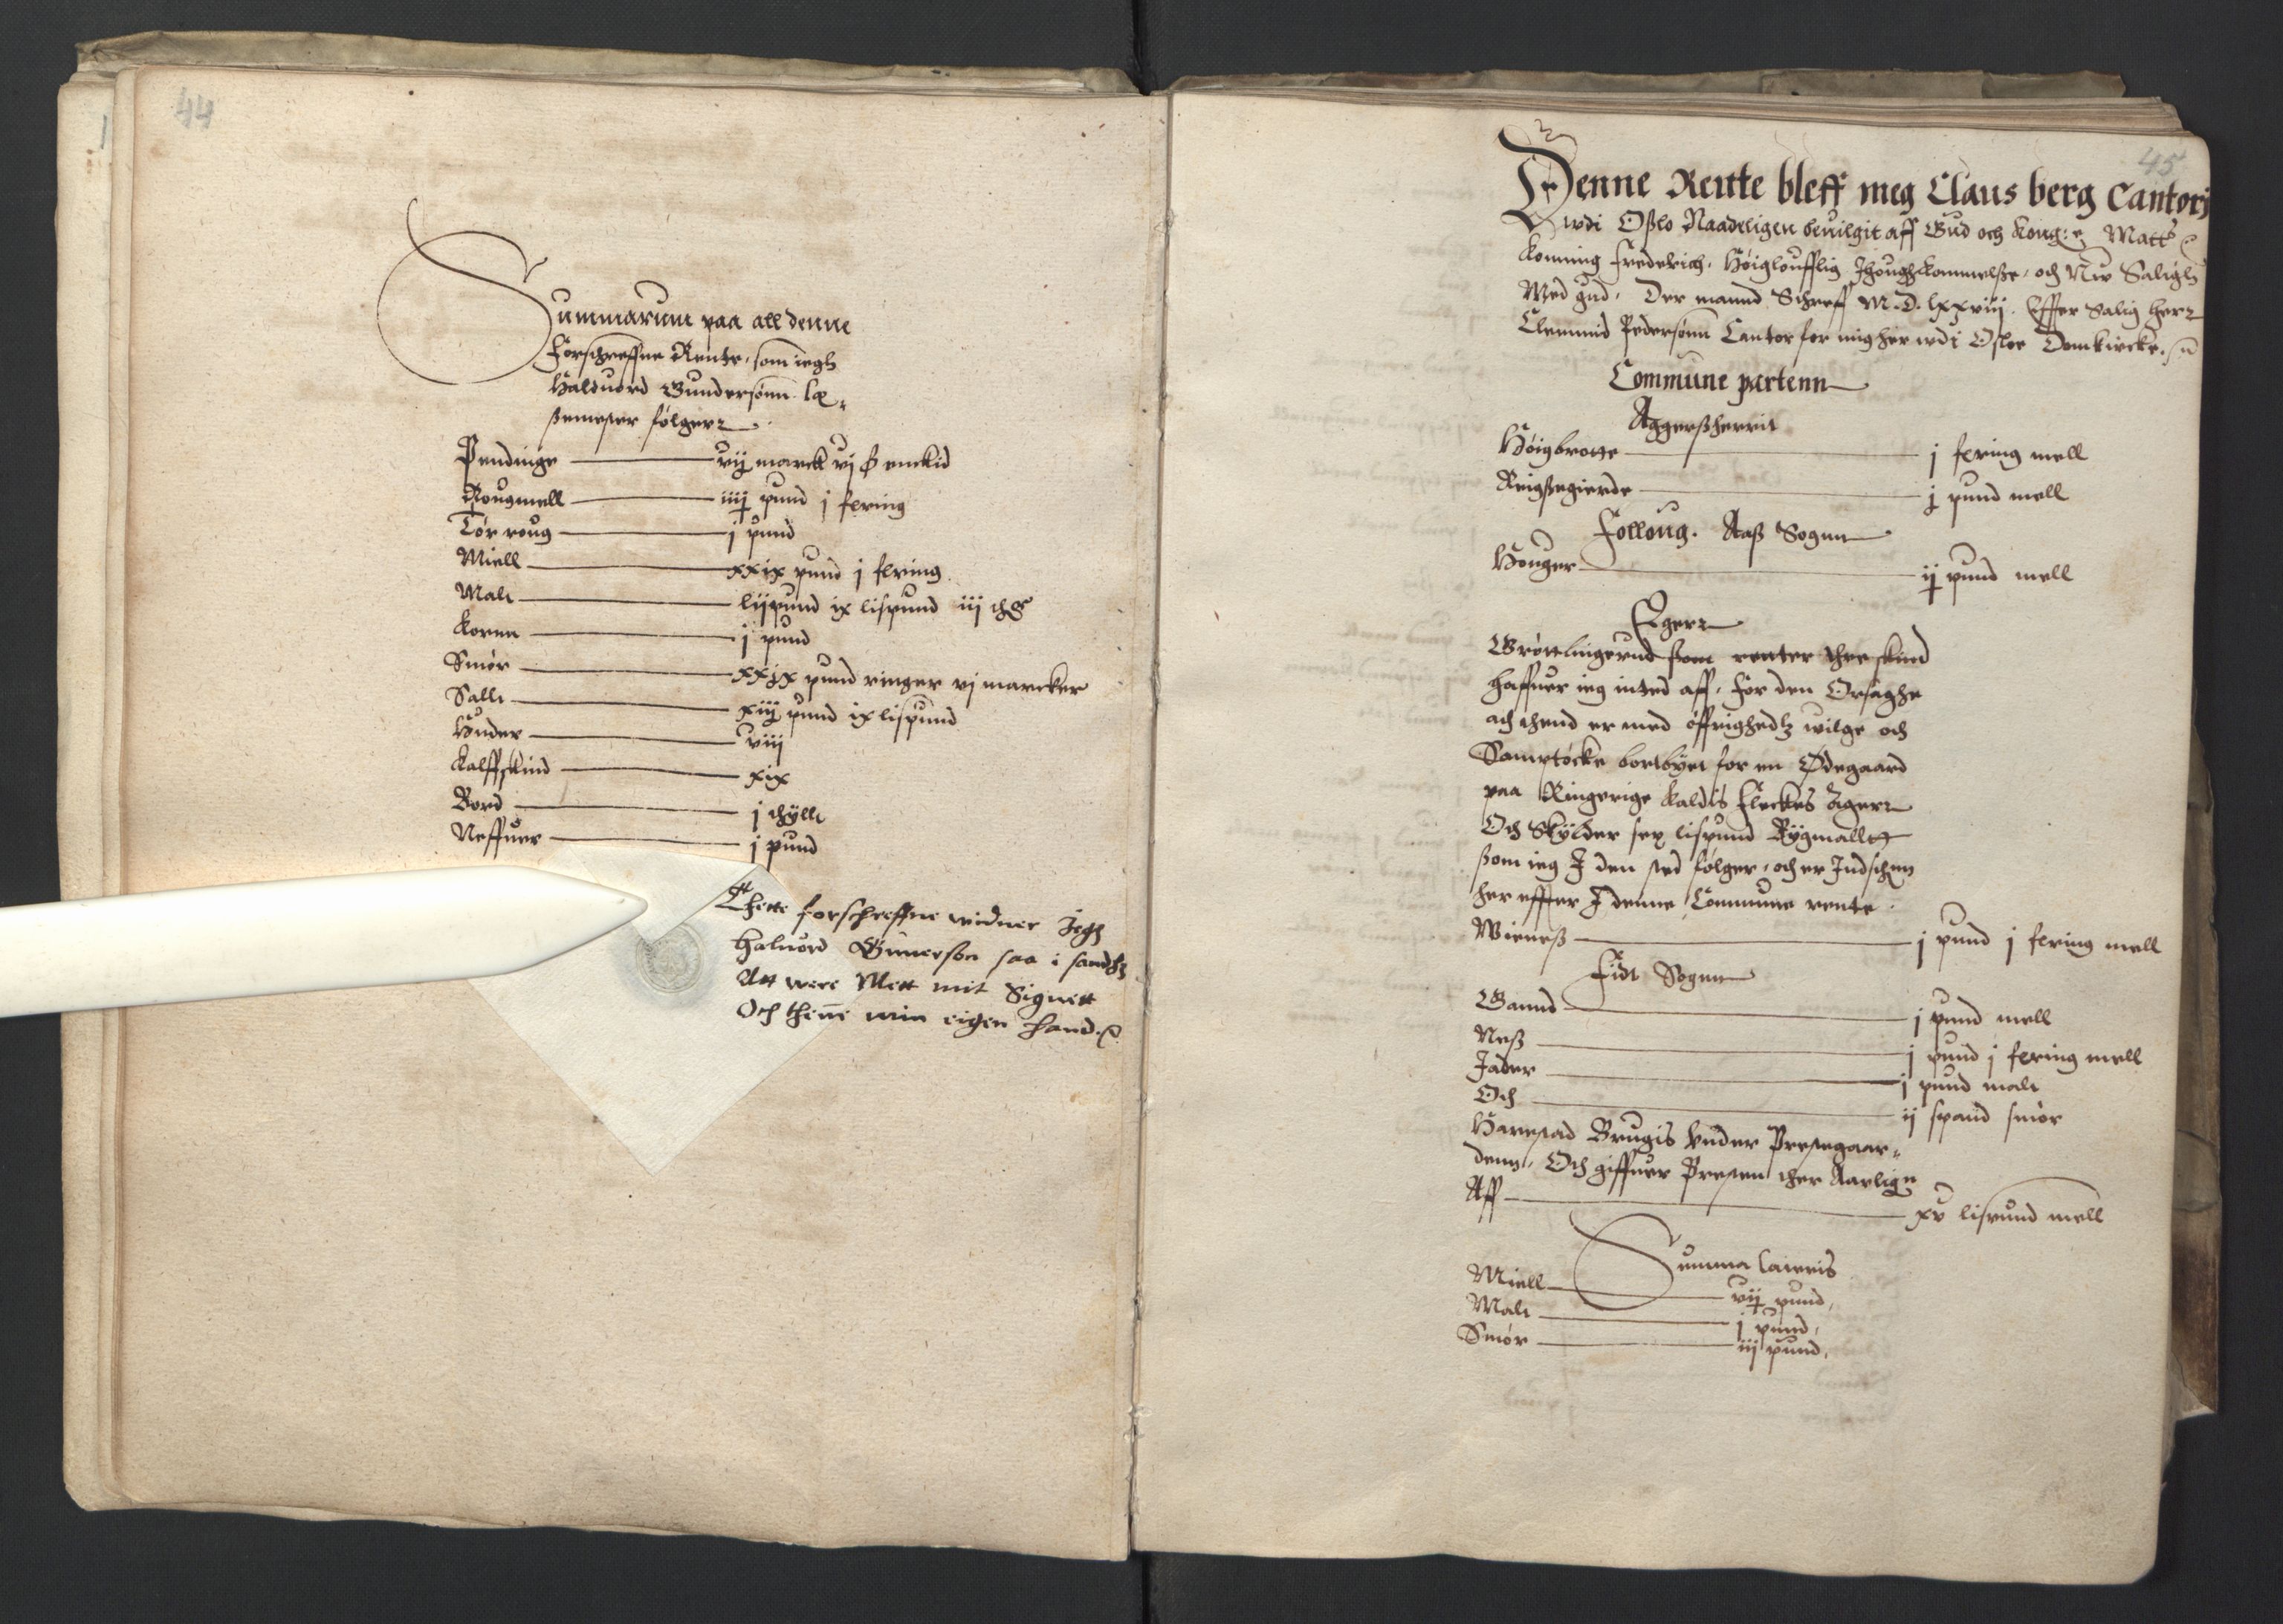 44
Summarum paa all denne
Forschreffne Rente, som iegh
Halduord Gundersønn læ-
ßemester følgerr
Pendinge vij marck vj ß enckid
Rougmell iiij pund j fering
Tør roug j pund
Miell xxix pund j fering
Malt lij pund ix lispund iij
Kornn j pund
Smør xxix pund ringer vj marcker
Sallt xiij pund ix lispund
Huder viij
Kalffskind xix
Bord j thyllt
Neffuer j pund
Thette forschreffne widner Jegh
Haluord Gunerson saa i sandh
Att were Mett mit Signett
Och thenne min eigen hand.
45
Denne Rente bleff meg Claus berg Cantori
wdi Oßlo Naadeligen beuilgit aff Gud och Kong: Matt
Konning Frederich, Høigloufflig Ihoughkommelße, och Nu Saligh
Med gud, Der mannd Schreff M.D.lxxviij. Effter Salig Herr
Clemmid Pedersønn Cantor for mig her wdi Osloe Domkircke.
Commune partenn
Aggersherrit
Høigbrotte j fering mell
Reigßegierde j pund mell
Folloug. Aaß Sognn
Houger ij pund mell
Egerr
Grøttlingerud ßom renter thre skind
haffuer ieg inted aff, for den Orsaghe
ath thend er med øffrighedtz wilge och
Samptøcke bortbyet for en Ødegaard
paa Ringerige kaldis Fleckes ager
Och Skylder sex lispund Rygmallt
ßom ieg I den sted følger, och er Indschreu
her effter I denne Commune rente.
Wieneß j pund j fering mell
Fidt Sognn
Gannd j pund mell
Neß j pund j fering mell
Jader j pund malt
Och ij spand smør
Harestad Brugis vnder Prestegaar-
denn, Och giffuer Presten ther Aarlign
Aff xv lispund mell
Summa lateris
Miell vij pund,
Malt j pund,
Smør iij pund,